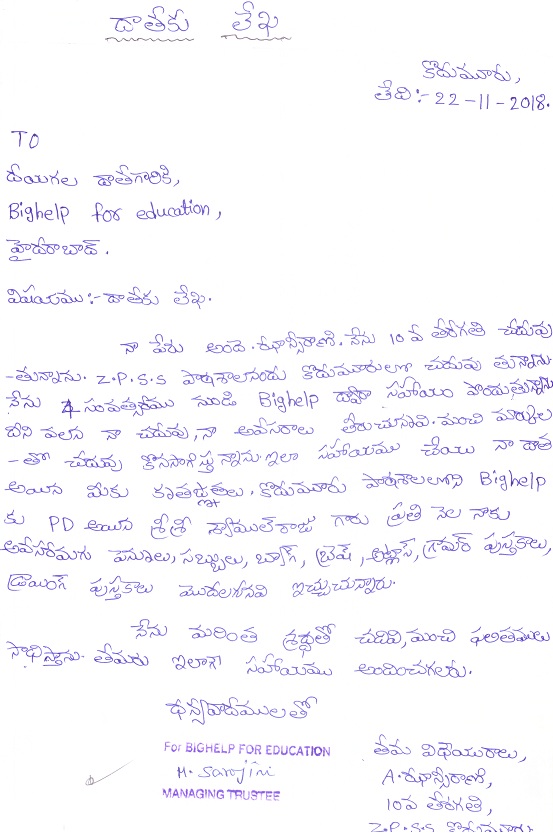 దాతకు లేఖ
కొడుమూరు,
తేది:- 22-11-2018.
TO
దయగల దాతగారికి,
Bighelp for education,
హైదరాబాద్.
విషయము:- దాతకు లేఖ.
నా పేరు అందె. ఝాన్సీరాణి. నేను 10 వ తరగతి చదువు
-తున్నాను. Z.P.S.S పాఠశాలనందు కొడుమూరులో చదువు తున్నాను
నేను 4 సంవత్సరము నుండి Bighelp ద్వారా సహాయం పొందుతున్నాను
దీని వలన నా చదువు, నా అవసరాలు తీరుచున్నవి. మంచి మార్కుల
-తో చదువు కొనసాగిస్తున్నాను. ఇలా సహాయము చేయు నా దాత
అయిన మీకు కృతజ్ఞతలు. కొడుమూరు పాఠశాలలోని Bighelp
కు PD అయిన శ్రీశ్రీ శ్యామలరాజు గారు ప్రతి నెల నాకు
అవసరమగు పెన్నులు, సబ్బులు, బ్యాగ్, బ్రష్, అట్లాస్, గ్రామర్ పుస్తకాలు,
డ్రాయింగ్ పుస్తకాలు మొదలగునవి ఇచ్చుచున్నారు.
నేను మరింత శ్రద్ధతో చదివి, మంచి ఫలితములు
సాధిస్తాను. తమరు ఇలాగే సహాయము అందించగలరు.
ధన్యవాదములతో
For BIGHELP FOR EDUCATION
M. Sarojini
MANAGING TRUSTEE
తమ విధేయురాలు,
A. ఝాన్సీరాణి,
10వ తరగతి,
Z.P.S.S కొడుమూరు.